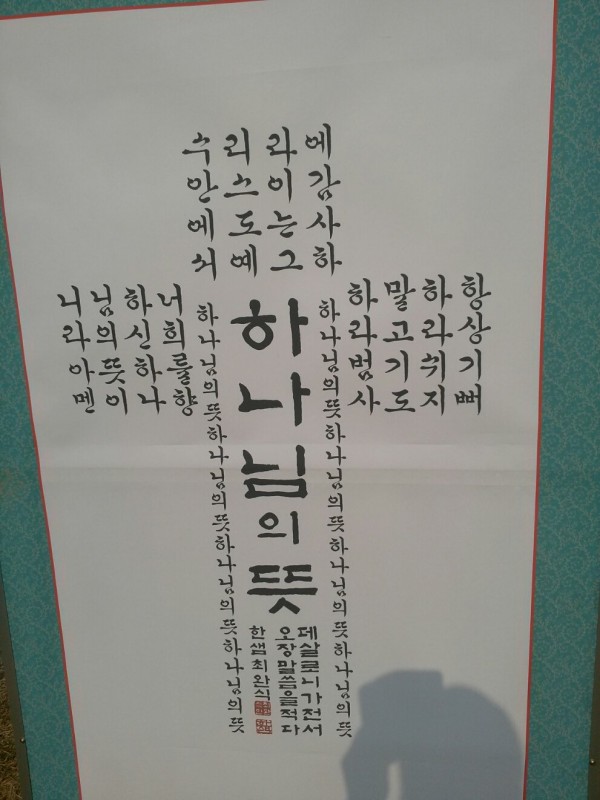 항상기뻐
하라쉬지
말고기도
하라범사
에감사하
라이는그
리스도예
수안에서
너희를향
하신하나
님의뜻이
니라아멘
하나님의뜻하나님의뜻하나님의뜻하나님의뜻
하나님의뜻
하나님의뜻하나님의뜻하나님의뜻하나님의뜻
데살로니가전서
오장말씀을적다
한샘최완식